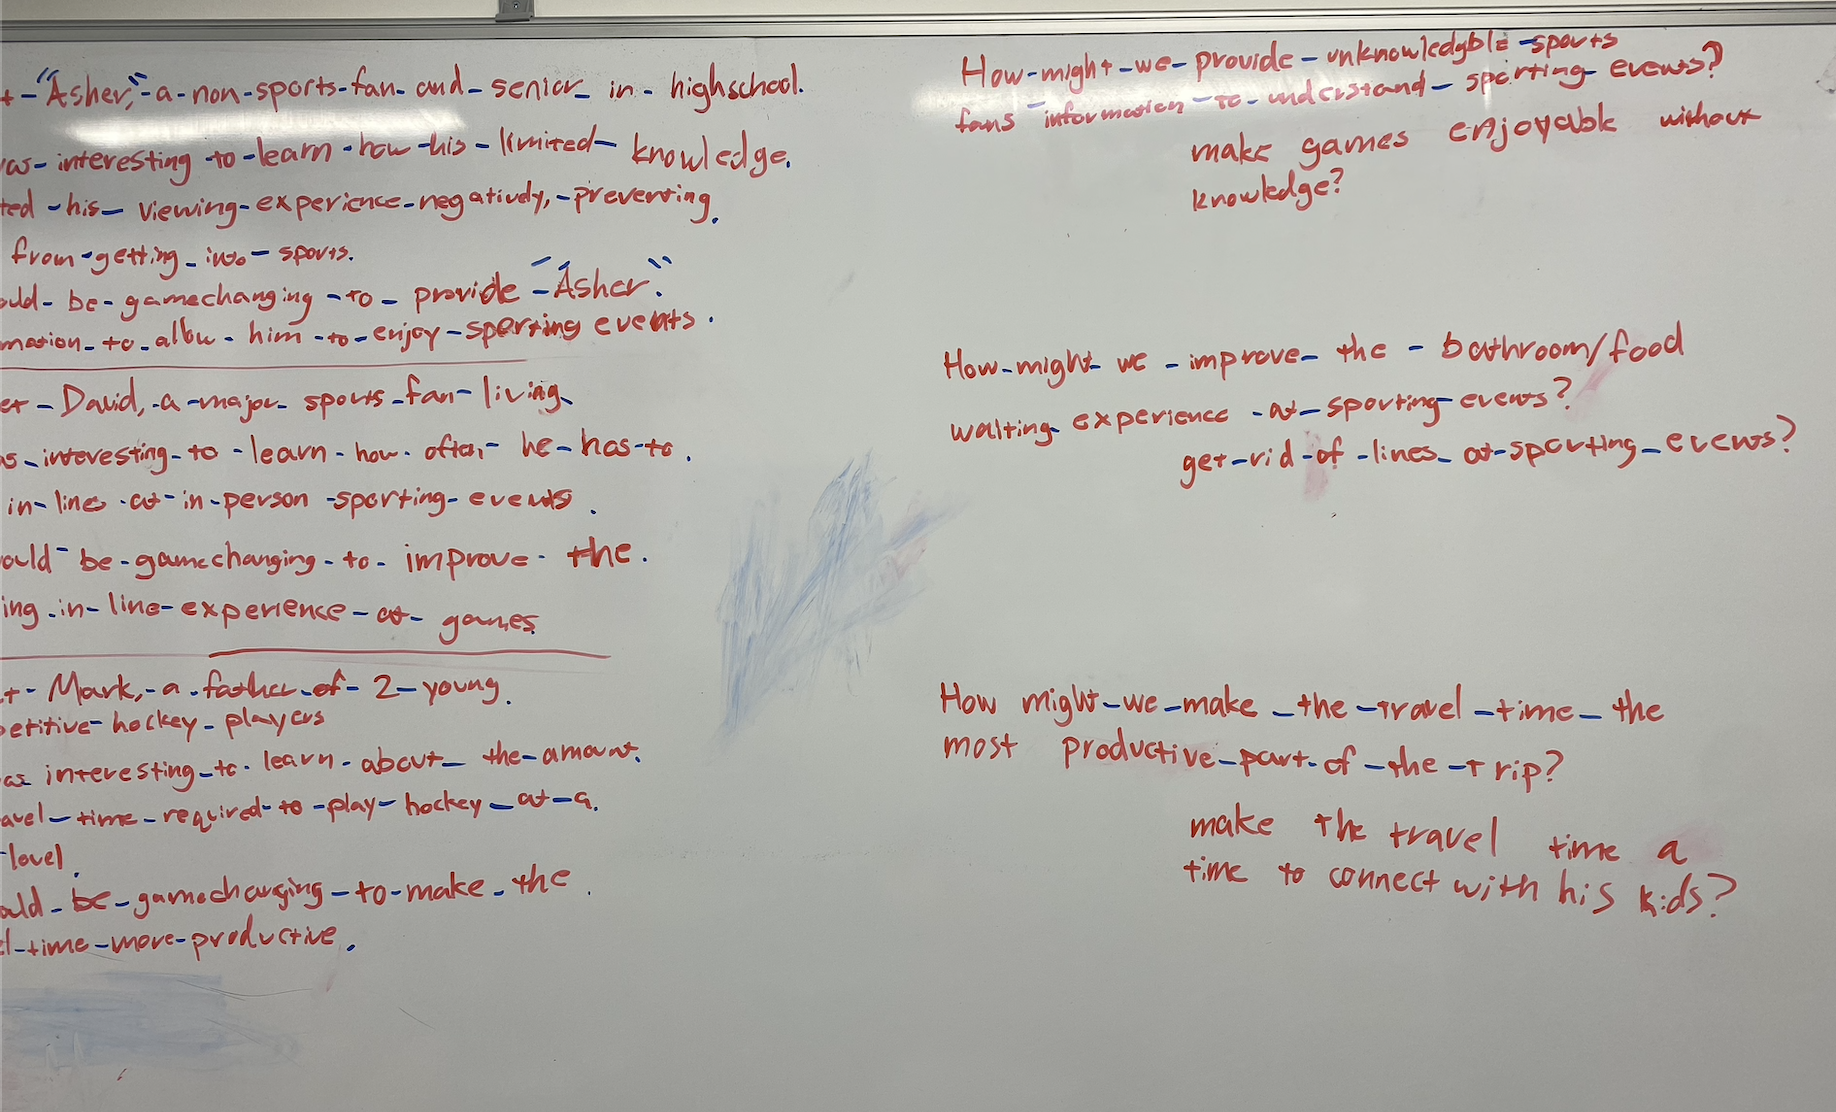 "Asher," a non sports fan and senior in highschool.
interesting to learn how his limited knowledge.
his viewing experience negatively, preventing
from getting into sports.
be gamechanging to provide "Asher"
to allow him to enjoy sporting events.
David, a major sports fan living
interesting to learn how often he has to
in line at in person sporting events.
be gamechanging to improve the
in line experience at games
Mark, a father of 2 young
hockey players
interesting to learn about the amount
time required to play hockey at a
level.
be gamechanging to make the
time more productive.
How might we provide unknowledgble sports
fans information to understand sporting events?
make games enjoyable without
knowledge?
How might we improve the bathroom/food
waiting experience at sporting events?
get rid of lines at sporting events?
How might we make the travel time the
most productive part of the trip?
make the travel time a
time to connect with his kids?